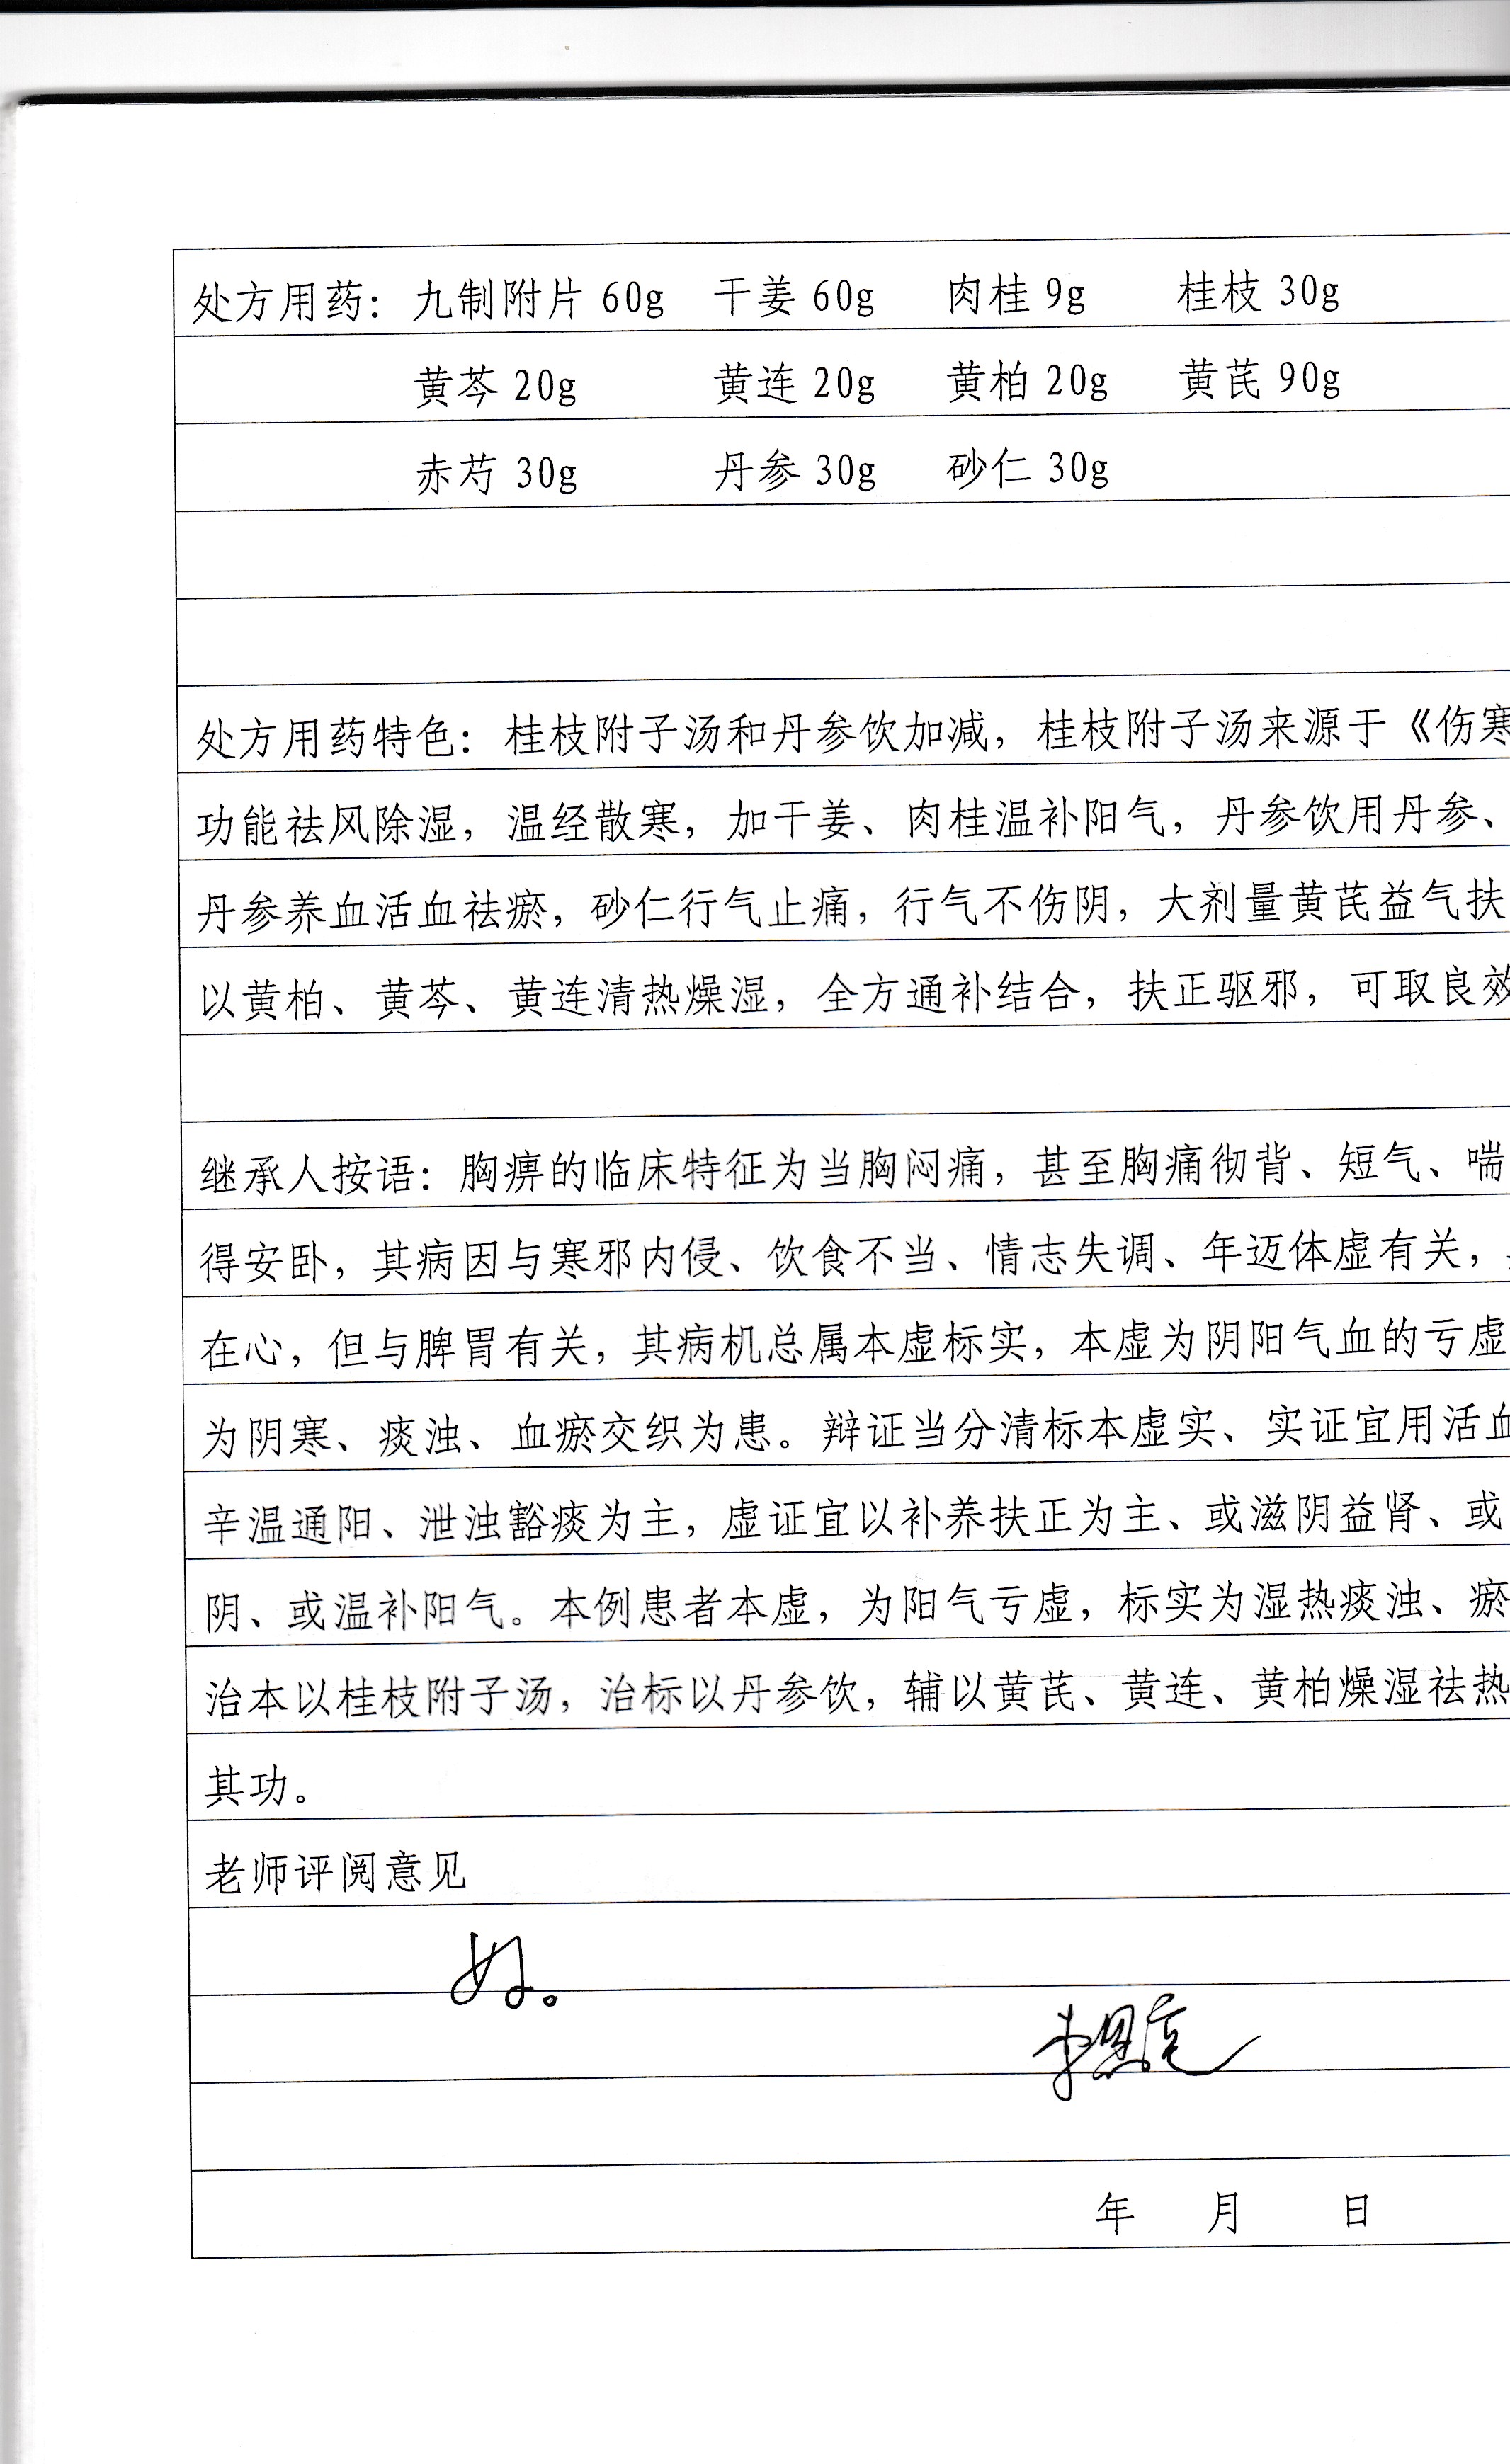 处方用药：九制附片 60g 干姜 60g 肉桂 9g 桂枝 30g
黄芩 20g 黄连 20g 黄柏 20g 黄芪 90g
赤芍 30g 丹参 30g 砂仁 30g
处方用药特色：桂枝附子汤和丹参饮加减，桂枝附子汤来源于《伤寒
功能祛风除湿，温经散寒，加干姜、肉桂温补阳气，丹参饮用丹参、
丹参养血活血祛瘀，砂仁行气止痛，行气不伤阴，大剂量黄芪益气扶
以黄柏、黄芩、黄连清热燥湿，全方通补结合，扶正驱邪，可取良效
继承人按语：胸痹的临床特征为当胸闷痛，甚至胸痛彻背、短气、喘
得安卧，其病因与寒邪内侵、饮食不当、情志失调、年迈体虚有关，
在心，但与脾胃有关，其病机总属本虚标实，本虚为阴阳气血的亏虚
为阴寒、痰浊、血瘀交织为患。辩证当分清标本虚实、实证宜用活血
辛温通阳、泄浊豁痰为主，虚证宜以补养扶正为主、或滋阴益肾、或
阴、或温补阳气。本例患者本虚，为阳气亏虚，标实为湿热痰浊、瘀
治本以桂枝附子汤，治标以丹参饮，辅以黄芪、黄连、黄柏燥湿祛热
其功。
老师评阅意见
好。
年 月 日